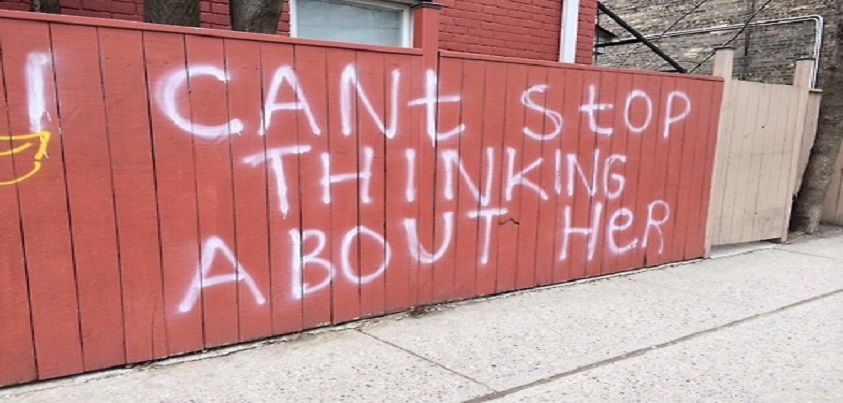 I CANt StOP
THINKING
ABOUT HeR